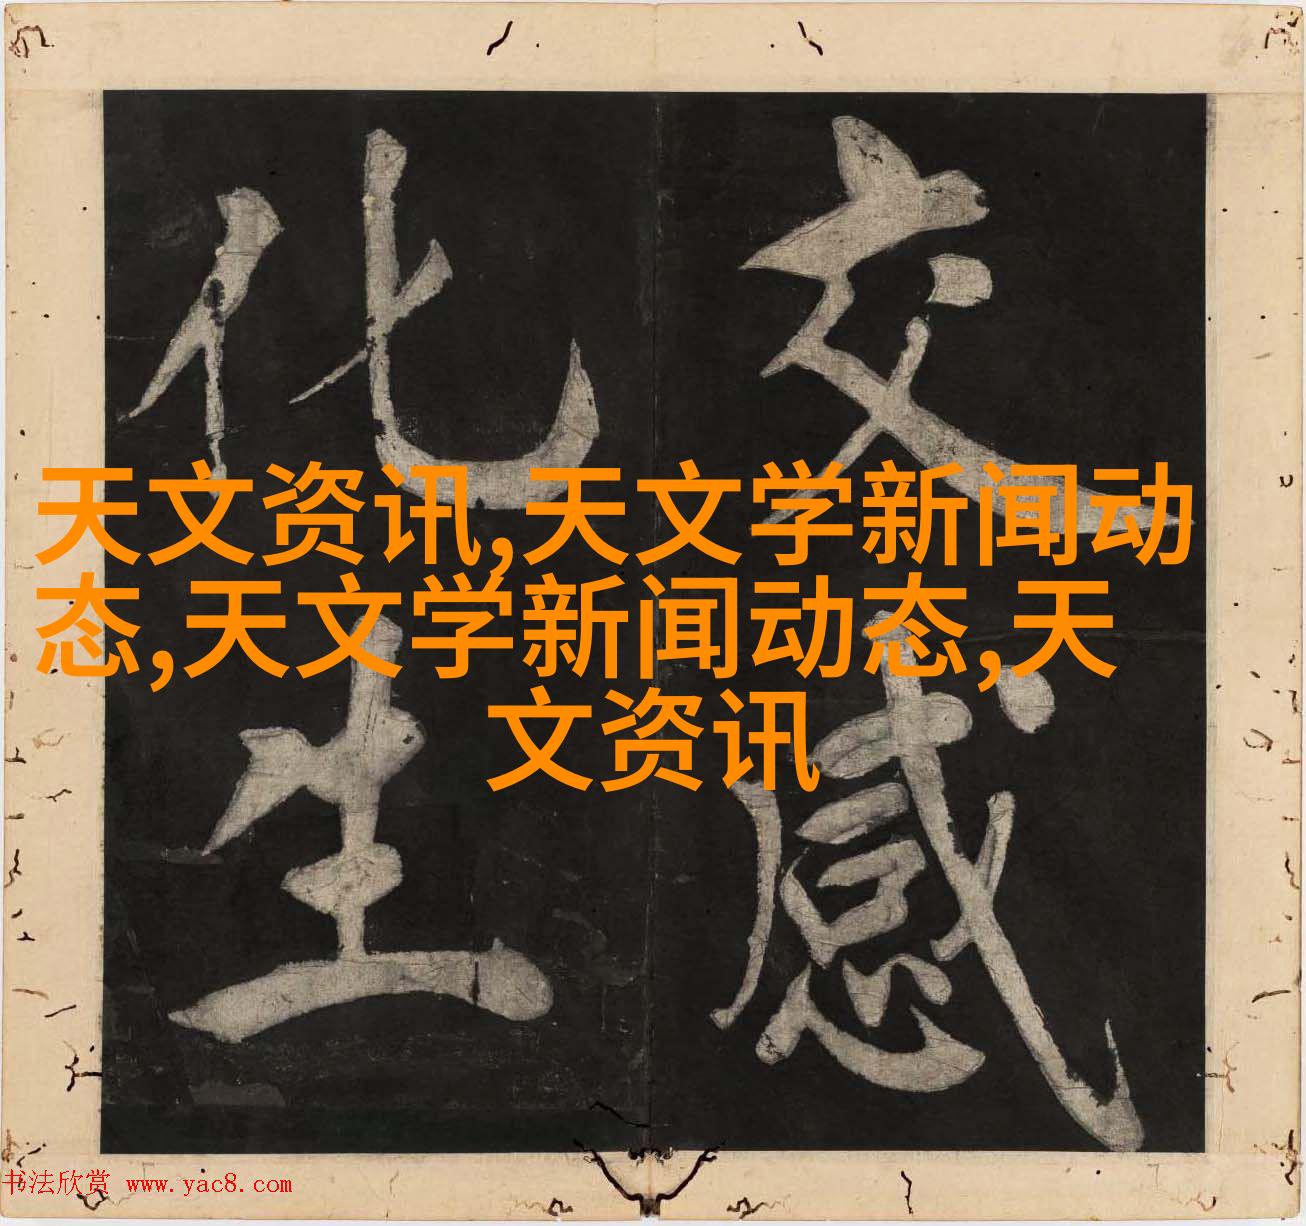 交感
化生
天文资讯,天文学新闻动
态,天文学新闻动态,天
文资讯
书法欣赏 www.yac8.com